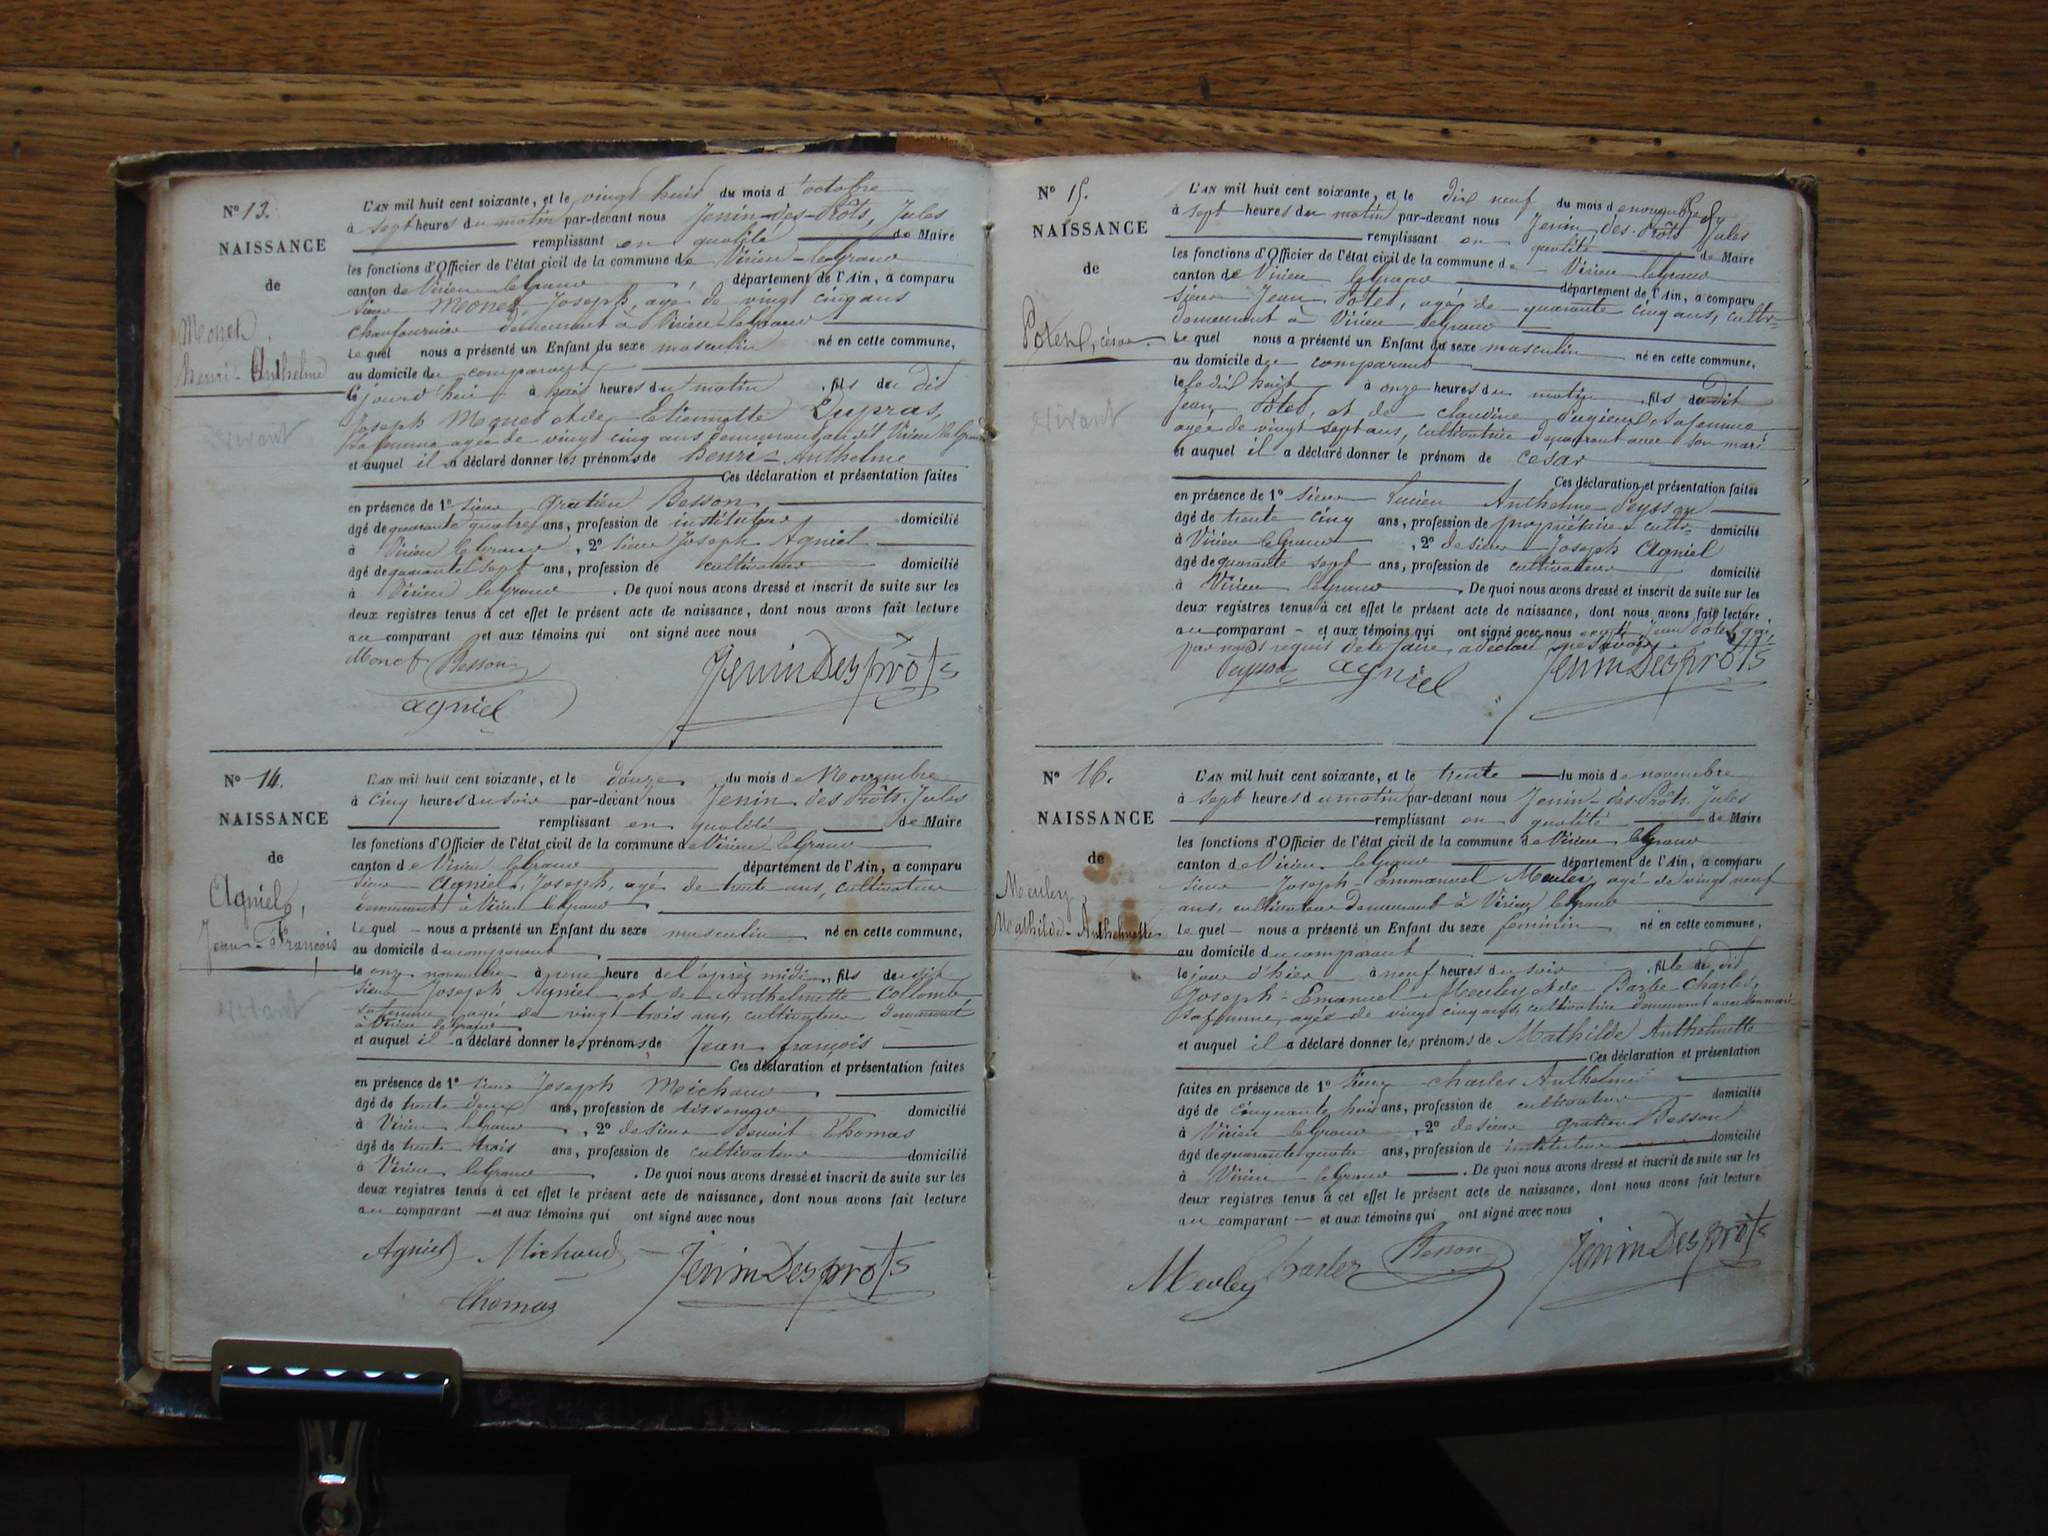 N° 13.
NAISSANCE
de
Monet,
henri-Anthelme
vivant
L'AN mil huit cent soixante, et le vingt huit du mois d'octobre
à sept heures du matin par-devant nous Jenin-des-Prôts, Jules
remplissant en qualité de Maire
les fonctions d'Officier de l'état civil de la commune de Virieu-le Grand
canton de Virieu le Grand département de l'Ain, a comparu
sieur Monet, Joseph, agé de vingt cinq ans
chaufournier demeurant à Virieu-le Grand
Lequel nous a présenté un Enfant du sexe masculin né en cette commune,
au domicile du comparant
jourd'hui à heures du matin, fils du dit
Joseph Monet et de Etiennette Dupras,
sa femme agée de vingt cinq ans demeurant au dit Virieu le Grand
et auquel il a déclaré donner les prénoms de Henri-Anthelme
Ces déclaration et présentation faites
en présence de 1° sieur gratien Besson
âgé de quarante quatre ans, profession de instituteur domicilié
à Virieu le Grand, 2° sieur Joseph Agniel
âgé de quarante sept ans, profession de cultivateur domicilié
à Virieu le Grand. De quoi nous avons dressé et inscrit de suite sur les
deux registres tenus à cet effet le présent acte de naissance, dont nous avons fait lecture
au comparant et aux témoins qui ont signé avec nous
Monet Besson JeninDesprôts
agniel
N° 14.
NAISSANCE
de
Agniel,
Jean-François
vivant
L'AN mil huit cent soixante, et le douze du mois de Novembre
à cinq heures du soir par-devant nous Jenin des Prôts, Jules
remplissant en qualité de Maire
les fonctions d'Officier de l'état civil de la commune de Virieu le Grand
canton de Virieu le Grand département de l'Ain, a comparu
sieur Agniel, Joseph, agé de trente ans, cultivateur
demeurant à Virieu le Grand
Lequel nous a présenté un Enfant du sexe masculin né en cette commune,
au domicile du comparant
le onze novembre à une heure de l'après midi, fils du dit
sieur Joseph Agniel et de Anthelmette Collomb
sa femme, agée de vingt trois ans, cultivateur demeurant
à Virieu le Grand
et auquel il a déclaré donner les prénoms de Jean françois
Ces déclaration et présentation faites
en présence de 1° sieur Joseph Michaud
âgé de trente deux ans, profession de tisserand domicilié
à Virieu le Grand, 2° de sieur Benoit Thomas
âgé de trente trois ans, profession de cultivateur domicilié
à Virieu le Grand. De quoi nous avons dressé et inscrit de suite sur les
deux registres tenus à cet effet le présent acte de naissance, dont nous avons fait lecture
au comparant et aux témoins qui ont signé avec nous
Agniel Michaud JeninDesprôts
Thomas
N° 15.
NAISSANCE
de
Potet, césar
vivant
L'AN mil huit cent soixante, et le dix neuf du mois de novembre
à sept heures du matin par-devant nous Jenin des-Prôts Jules
remplissant en qualité de Maire
les fonctions d'Officier de l'état civil de la commune de Virieu le Grand
canton de Virieu le Grand département de l'Ain, a comparu
sieur Jean Potet, agé de quarante cinq ans, cultr
demeurant à Virieu le Grand
Lequel nous a présenté un Enfant du sexe masculin né en cette commune,
au domicile du comparant
le dix huit à onze heures du matin, fils du dit
Jean Potet, et de claudine sa femme
agée de vingt sept ans, cultivatrice demeurant avec son mari
et auquel il a déclaré donner le prénom de cesar
Ces déclaration et présentation faites
en présence de 1° sieur Lucien Anthelme Peysson
âgé de trente cinq ans, profession de propriétaire cultr domicilié
à Virieu le Grand, 2° de sieur Joseph Agniel
âgé de quarante sept ans, profession de cultivateur domicilié
à Virieu le Grand. De quoi nous avons dressé et inscrit de suite sur les
deux registres tenus à cet effet le présent acte de naissance, dont nous avons fait lecture,
au comparant et aux témoins qui ont signé avec nous excepté Jean Potet qui,
par nous requis de le faire, a déclaré ne savoir
Peysson agniel JeninDesprôts
N° 16.
NAISSANCE
de
Meuley
Mathilde-Anthelmette
L'AN mil huit cent soixante, et le trente du mois de novembre
à sept heures du matin par-devant nous Jenin-des-Prôts Jules
remplissant en qualité de Maire
les fonctions d'Officier de l'état civil de la commune de Virieu le Grand
canton de Virieu le Grand département de l'Ain, a comparu
sieur Joseph-Emmanuel Meuley, agé de vingt neuf
ans, cultivateur demeurant à Virieu le Grand
Lequel nous a présenté un Enfant du sexe feminin né en cette commune,
au domicile du comparant
le jour d'hier à neuf heures du soir, fille du dit
Joseph-Emanuel Meuley et de Barbe Charles,
sa femme, agée de vingt cinq ans, cultivatrice demeurant avec son mari
et auquel il a déclaré donner les prénoms de Mathilde Anthelmette
Ces déclaration et présentation
faites en présence de 1° sieur charles Anthelme
âgé de cinquante huit ans, profession de cultivateur domicilié
à Virieu le Grand, 2° de sieur gratien Besson
âgé de quarante quatre ans, profession de instituteur domicilié
à Virieu le Grand. De quoi nous avons dressé et inscrit de suite sur les
deux registres tenus à cet effet le présent acte de naissance, dont nous avons fait lecture
au comparant et aux témoins qui ont signé avec nous
Meuley Charles Besson JeninDesprôts